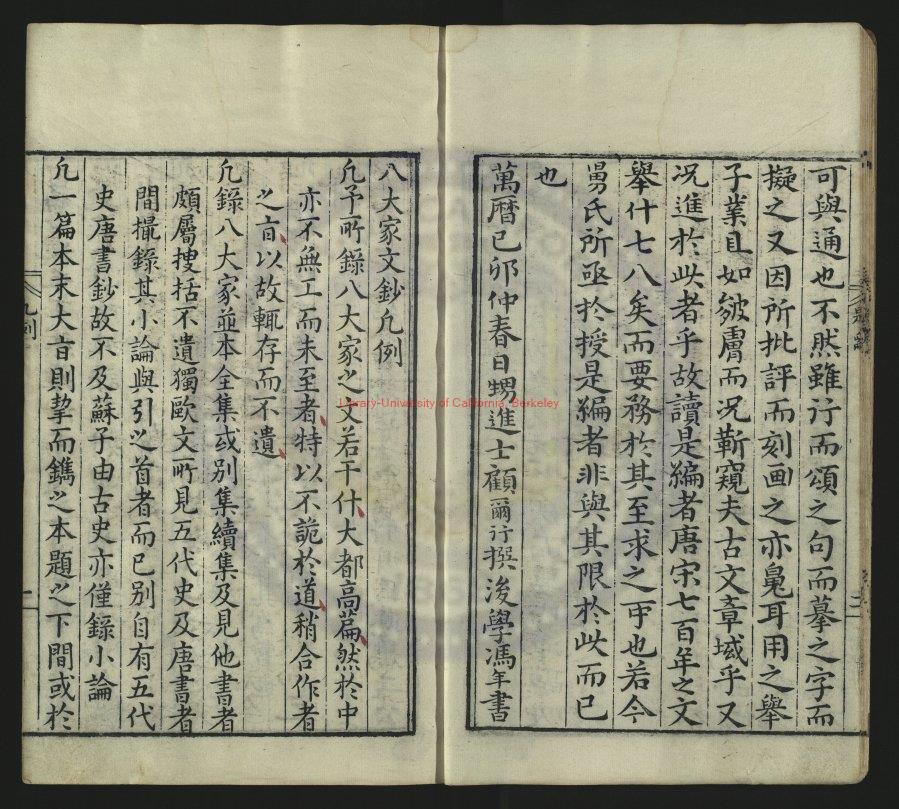 可與通也不然雖行而頌之句而摹之字而
擬之又因所批評而刻画之亦鼻耳用之舉
子業且如皴膚而况靳窺夫古文章域乎又
况進於此者乎故讀是編者唐宋七百年之文
舉什七八矣而要務於其至求之可也若今
舅氏所亟於授是編者非與其限於此而已
也
萬曆己卯仲春日甥進士顧爾行撰後學馮年書
八大家文鈔凡例
凡予所錄八大家之文若干什大都高篇然於中
亦不無工而未至者特以不詭於道稍合作者
之㫖以故輒存而不遺
凡錄八大家並本全集或别集續集及見他書者
頗屬搜括不遺獨歐文所見五代史及唐書者
間撮錄其小論與引之首者而已别自有五代
史唐書鈔故不及蘇子由古史亦僅錄小論
凡一篇本末大㫖則挈而鐫之本題之下間或於
凡例
一
二
Library-University of California, Berkeley